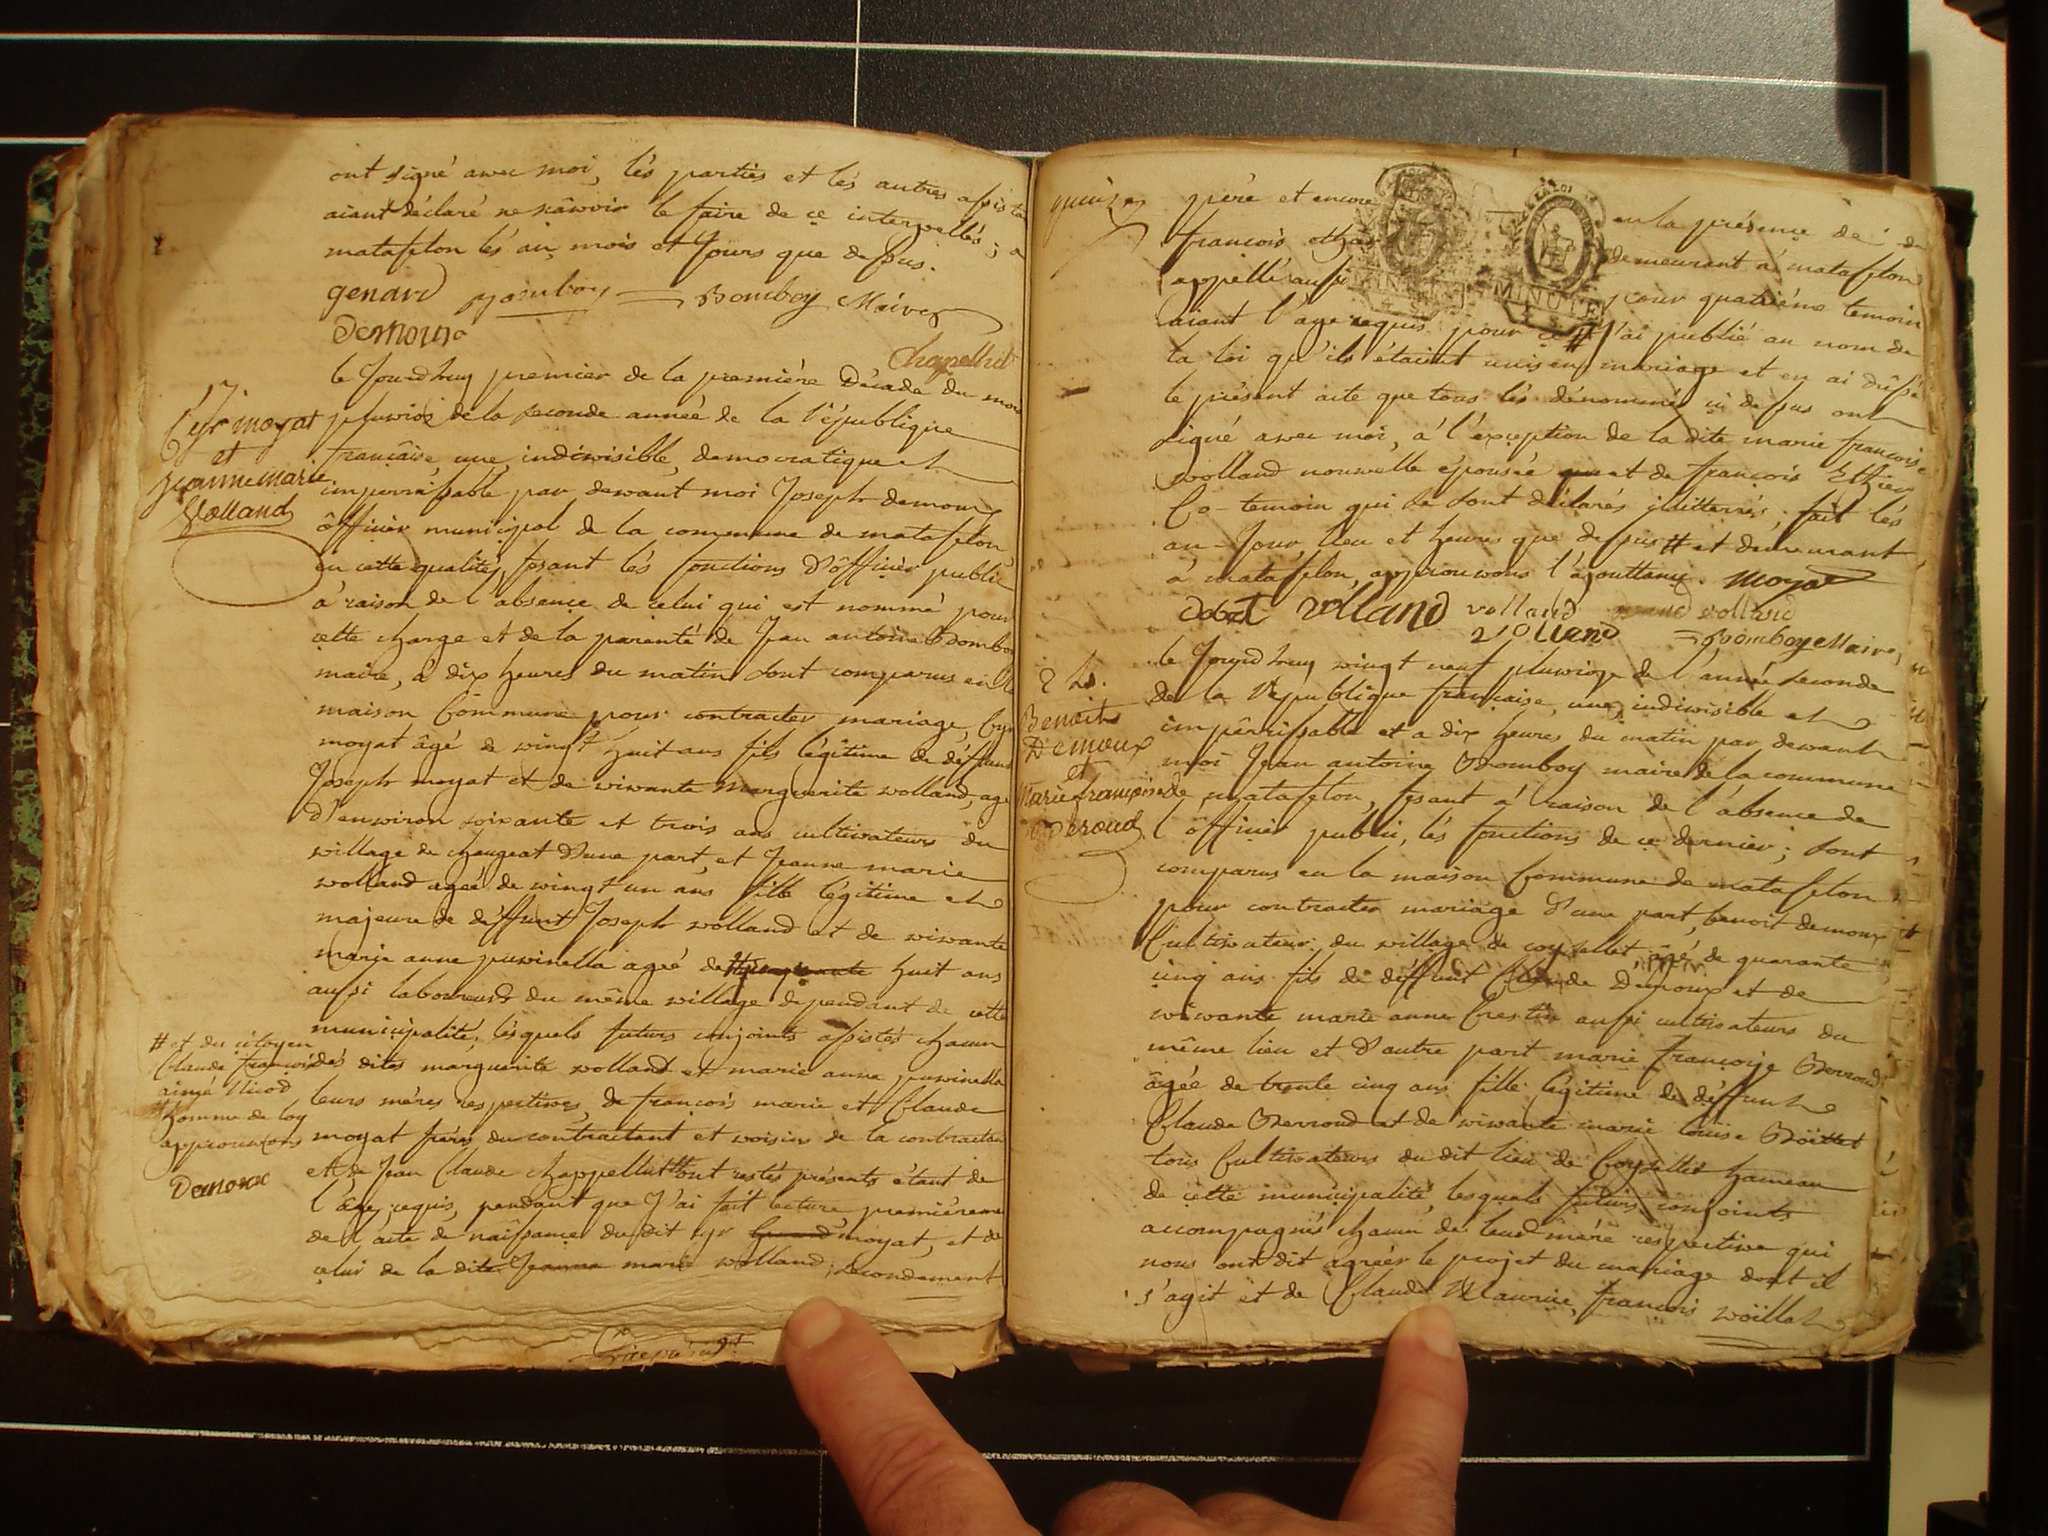 ont signé avec moi, lés parties et lés autres assista
aiant déclaré ne sâwoir le faire de ce interpellés ; a
matafelon lés an mois et Jours que dessus.
genard Bomboy Maire
Demoux
Chapellut
le Jourdhuy premier de la première Décade du mois
17.
Cyr moyat
et
Jeanne marie
Volland
pluviôs de la seconde année de la République
francaise, une, indiwisible, democratique et
imperrissable par dewant moi Joseph demoux
ôfficier municipal de la commune de matafelon
en cette qualité, fesant lés fonctions d'ôfficier public
à raison de l'absence de celui qui est nommé pour
cette charge et de la parenté de Jean antoine Bomboy
maire, à dix heures du matin sont comparus en la
maison Commune pour contracter mariage, Cyr
moyat âgé de wingt huit ans fils légitime de déffunt
Joseph moyat et de wiwante marguerite wolland, agé
d'enwiron soixante et trois ans cultivateurs du
willage de chougeat d'une part, et Jeanne marie
wolland ageé de wingt un ans fille légitime et
majeure de déffunt Joseph wolland et de wiwante
marie anne puwinella ageé de huit ans
aussi laboureurs du même willage dependant de cette
municipalité, lésquels futurs conjoints assistés chacun
# et du citoyen
Claude francois
aimé Nicod
# homme de loy
approuwons
Demoux
dés dites marguerite wolland et marie anne puwinella
leurs méres respectives, de francois marie et Claude
moyat frères du contractant et woisins de la contractan
et de Jean Claude chappellut # ont restés présents étant de
l'âge requis, pendant que J'ai fait lecture, premièreme
de l'acte de nâissance du dit cyr moyat, et de
celui de la dite Jeanne marie wolland ; secondement
quinze
père et encore en la présence de
francois demeurant à matafelon
appellé aussi pour quatrième temoin
aiant l'âge requis pour ce # J'ai publié au nom de
la loi qu'ils étaient unis en mariage et en ai drêssé
le présent acte que tous lés dénommés ci dessus ont
signé awec moi, à l'exception de la dite marie francoise
wolland nouwelle épousée et de francois
Co-temoin qui se sont déclarés illitterrés ; fait lés
an-Jour, lieu et heures que dessus # et demeurant
à matafelon, approuwons l'ajouttance. moyat
debat volland volland volland
volland Bomboy Maire
le Jourdhuy wingt neuf pluwiose de l'année seconde
Benoit
Demoux
et
Marie francoise
Deroud
de la République française, une, indiwisible et
impérrissable et a dix heures du matin par dewant
moi Jean antoine Bomboy maire de la commune
de matafelon, fesant à raison de l'absence de
l'ôfficier public, lés fonctions de ce dernier ; sont
comparus en la maison Commune de matafelon
pour contracter mariage d'une part, benoit demoux
Cultivateur du willage de coysellet, âgé de quarante
cinq ans fils de déffunt Claude Demoux et de
wiwante marie anne Crestin aussi cultivateurs du
même lieu et d'autre part marie francoise Derroud
âgée de trente cinq ans fille légitime de déffunt
Claude Derroud et de wiwante marie louise
tous Cultivateurs du dit lieu de Coysellet hameau
de cette municipalité, lesquels futurs conjoints
accompagnés chacun de leur mère respective qui
nous ont dit agréer le projet du mariage dont il
s'agit et de Claude Maurice, francois woillat